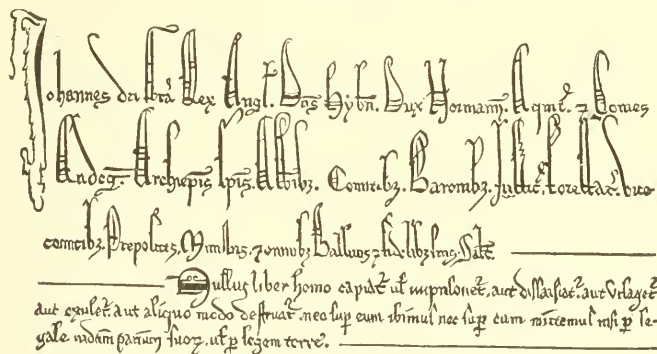 Johannes dei grã Rex Angl. Dñs Hybñ. Dux Normanñ. Aquit̃. ⁊ Comes
Andeg̃. Archiepĩs Ep̃is. Abbĩbꝫ. Comitibꝫ. Baronibꝫ. Justic̃. forestar̃. vice
comitibꝫ. Prepositis. Ministris. ⁊ omnibꝫ Ballivis ⁊ fidelibꝫ suis. Salt̃.
Nullus liber homo capiat̃. ul̃ imprisonet̃. aut dissaisiat̃. aut utlaget̃.
aut exulet̃. aut aliquo modo destruat̃. nec sup̃ eum ibimus nec sup̃ eum mittemus nisi ꝑ le-
gale iudicium parium suoꝝ. ul̃ ꝑ legem terre.